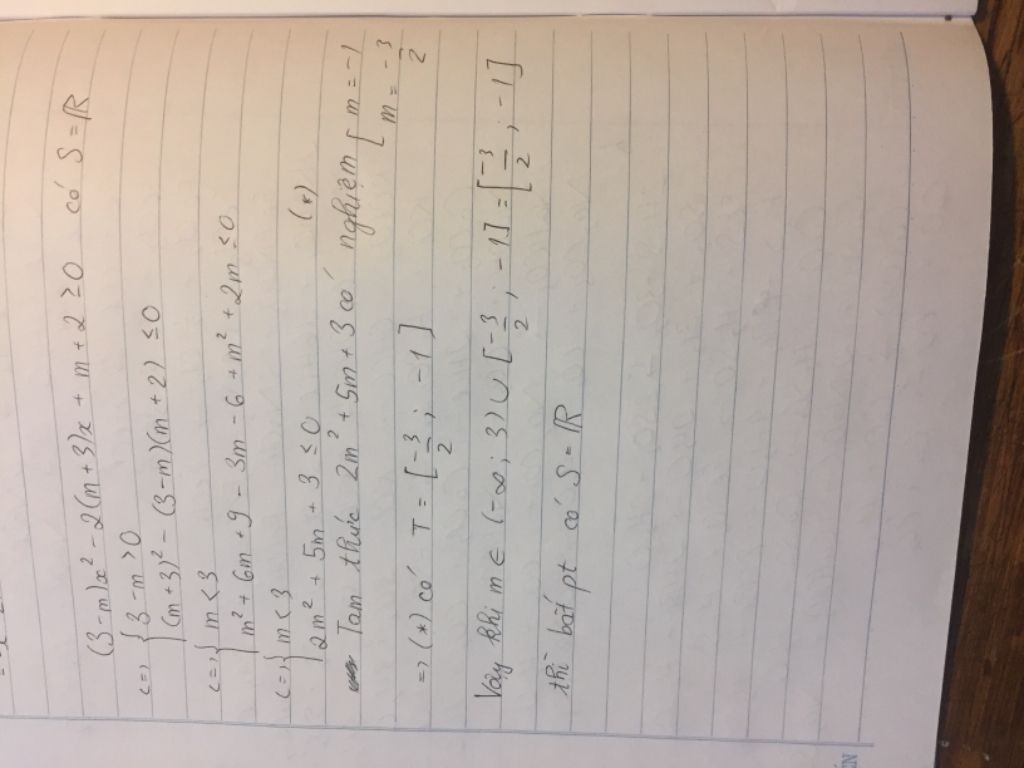 (3-m)x² - 2(m+3)x + m + 2 ≥ 0 có S = ℝ
<=> { 3 - m > 0
(m+3)² - (3-m)(m+2) ≤ 0
<=> { m < 3
m² + 6m + 9 - 3m - 6 + m² + 2m ≤ 0
<=> { m < 3
2m² + 5m + 3 ≤ 0 (*)
Tam thức 2m² + 5m + 3 có nghiệm [ m = -1
m = -3/2
=> (*) có T = [-3/2 ; -1]
Vậy khi m ∈ (-∞; 3) ∪ [-3/2 ; -1] = [-3/2 ; -1]
thì bất pt có S = ℝ